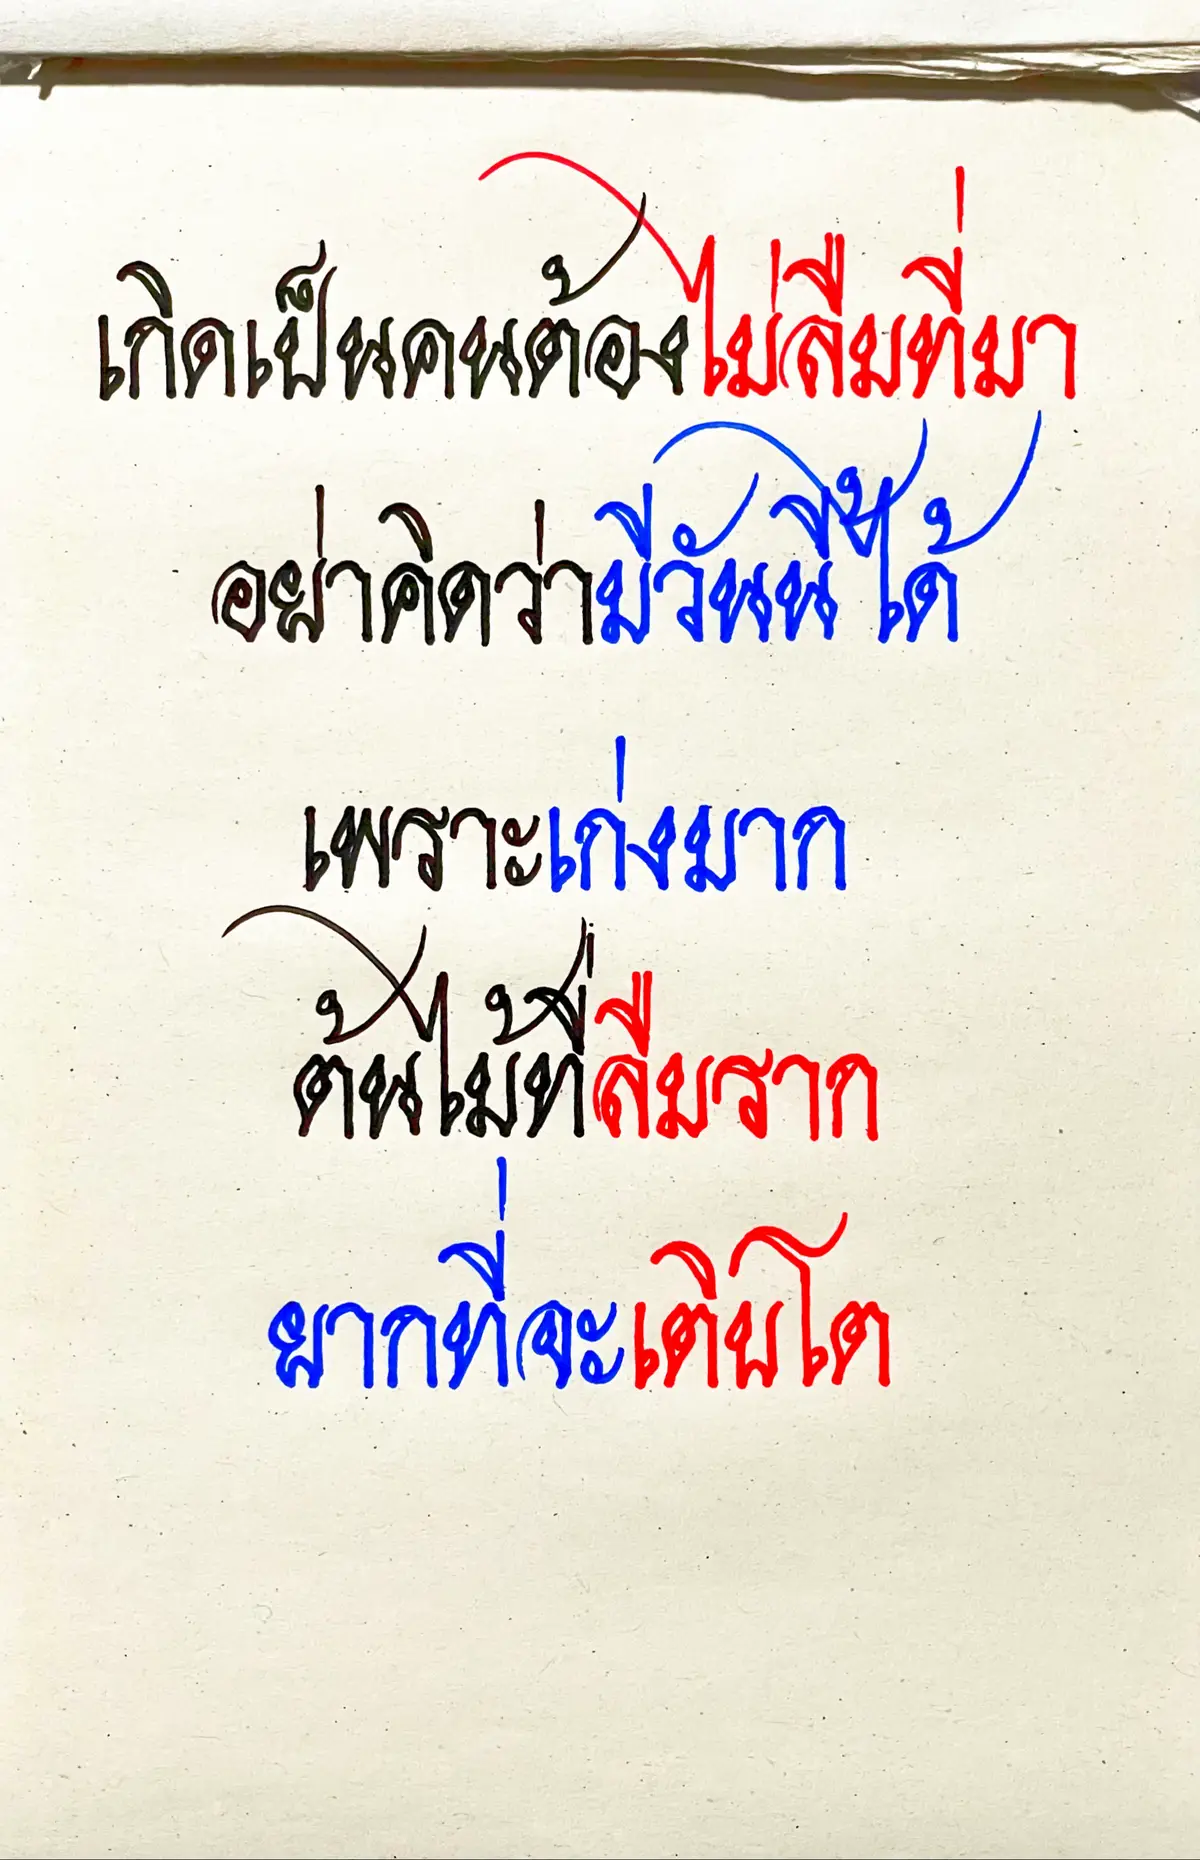 เกิดเป็นคนต้องไม่ลืมที่มา
อย่าคิดว่ามีวันนี้ได้
เพราะเก่งมาก
ต้นไม้ที่ลืมราก
ยากที่จะเติบโต